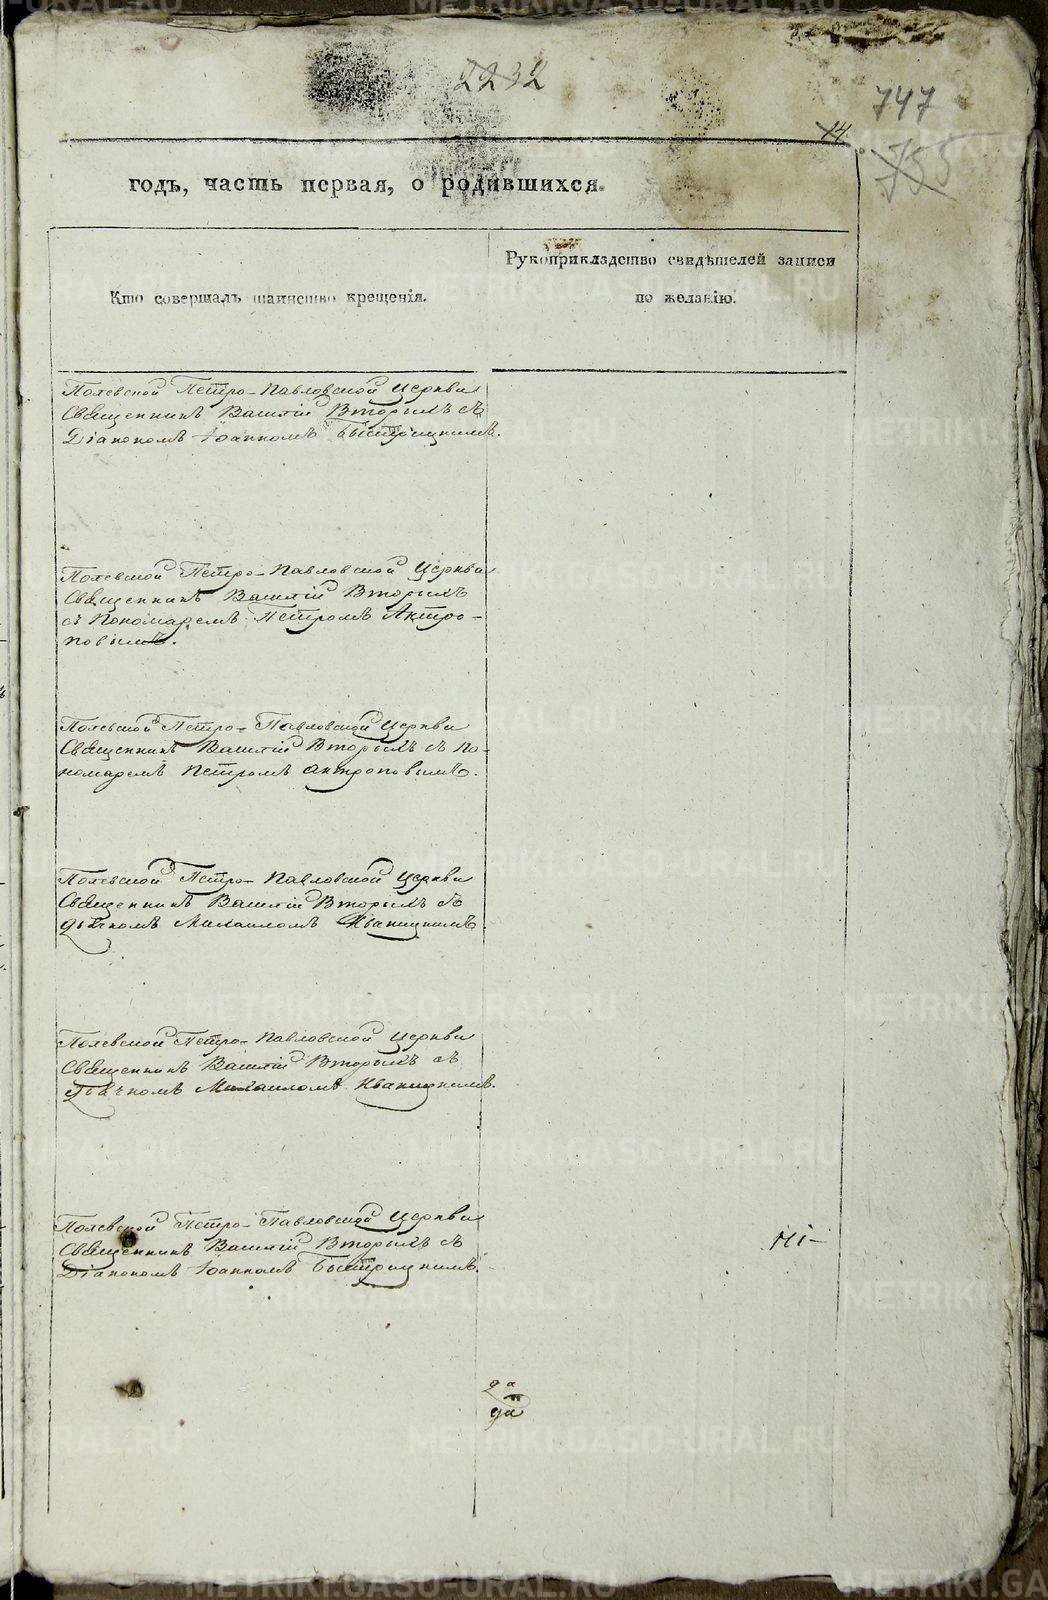 2232
747
14.
755
годъ, часть первая, о родившихся.
Кто совершалъ таинство крещенія.
Рукоприкладство свидѣтелей записи
по желанію.
Полевской Петро-Павловской Церкви
Священникъ Василій Вторыхъ съ
Діакономъ Іоанномъ Быстрицкимъ.
Полевской Петро-Павловской Церкви
Священникъ Василій Вторыхъ
съ Пономаремъ Петромъ Антро-
повымъ.
Полевской Петро-Павловской Церкви
Священникъ Василій Вторыхъ съ По-
номаремъ Петромъ Антроповымъ.
Полевской Петро-Павловской Церкви
Священникъ Василій Вторыхъ съ
дьячкомъ Михаиломъ Иваницкимъ.
Полевской Петро-Павловской Церкви
Священникъ Василій Вторыхъ съ
Дьячкомъ Михаиломъ Иваницкимъ.
Полевской Петро-Павловской Церкви
Священникъ Василій Вторыхъ съ
Діакономъ Іоанномъ Быстрицкимъ.
METRIKI.GASO-URAL.RU